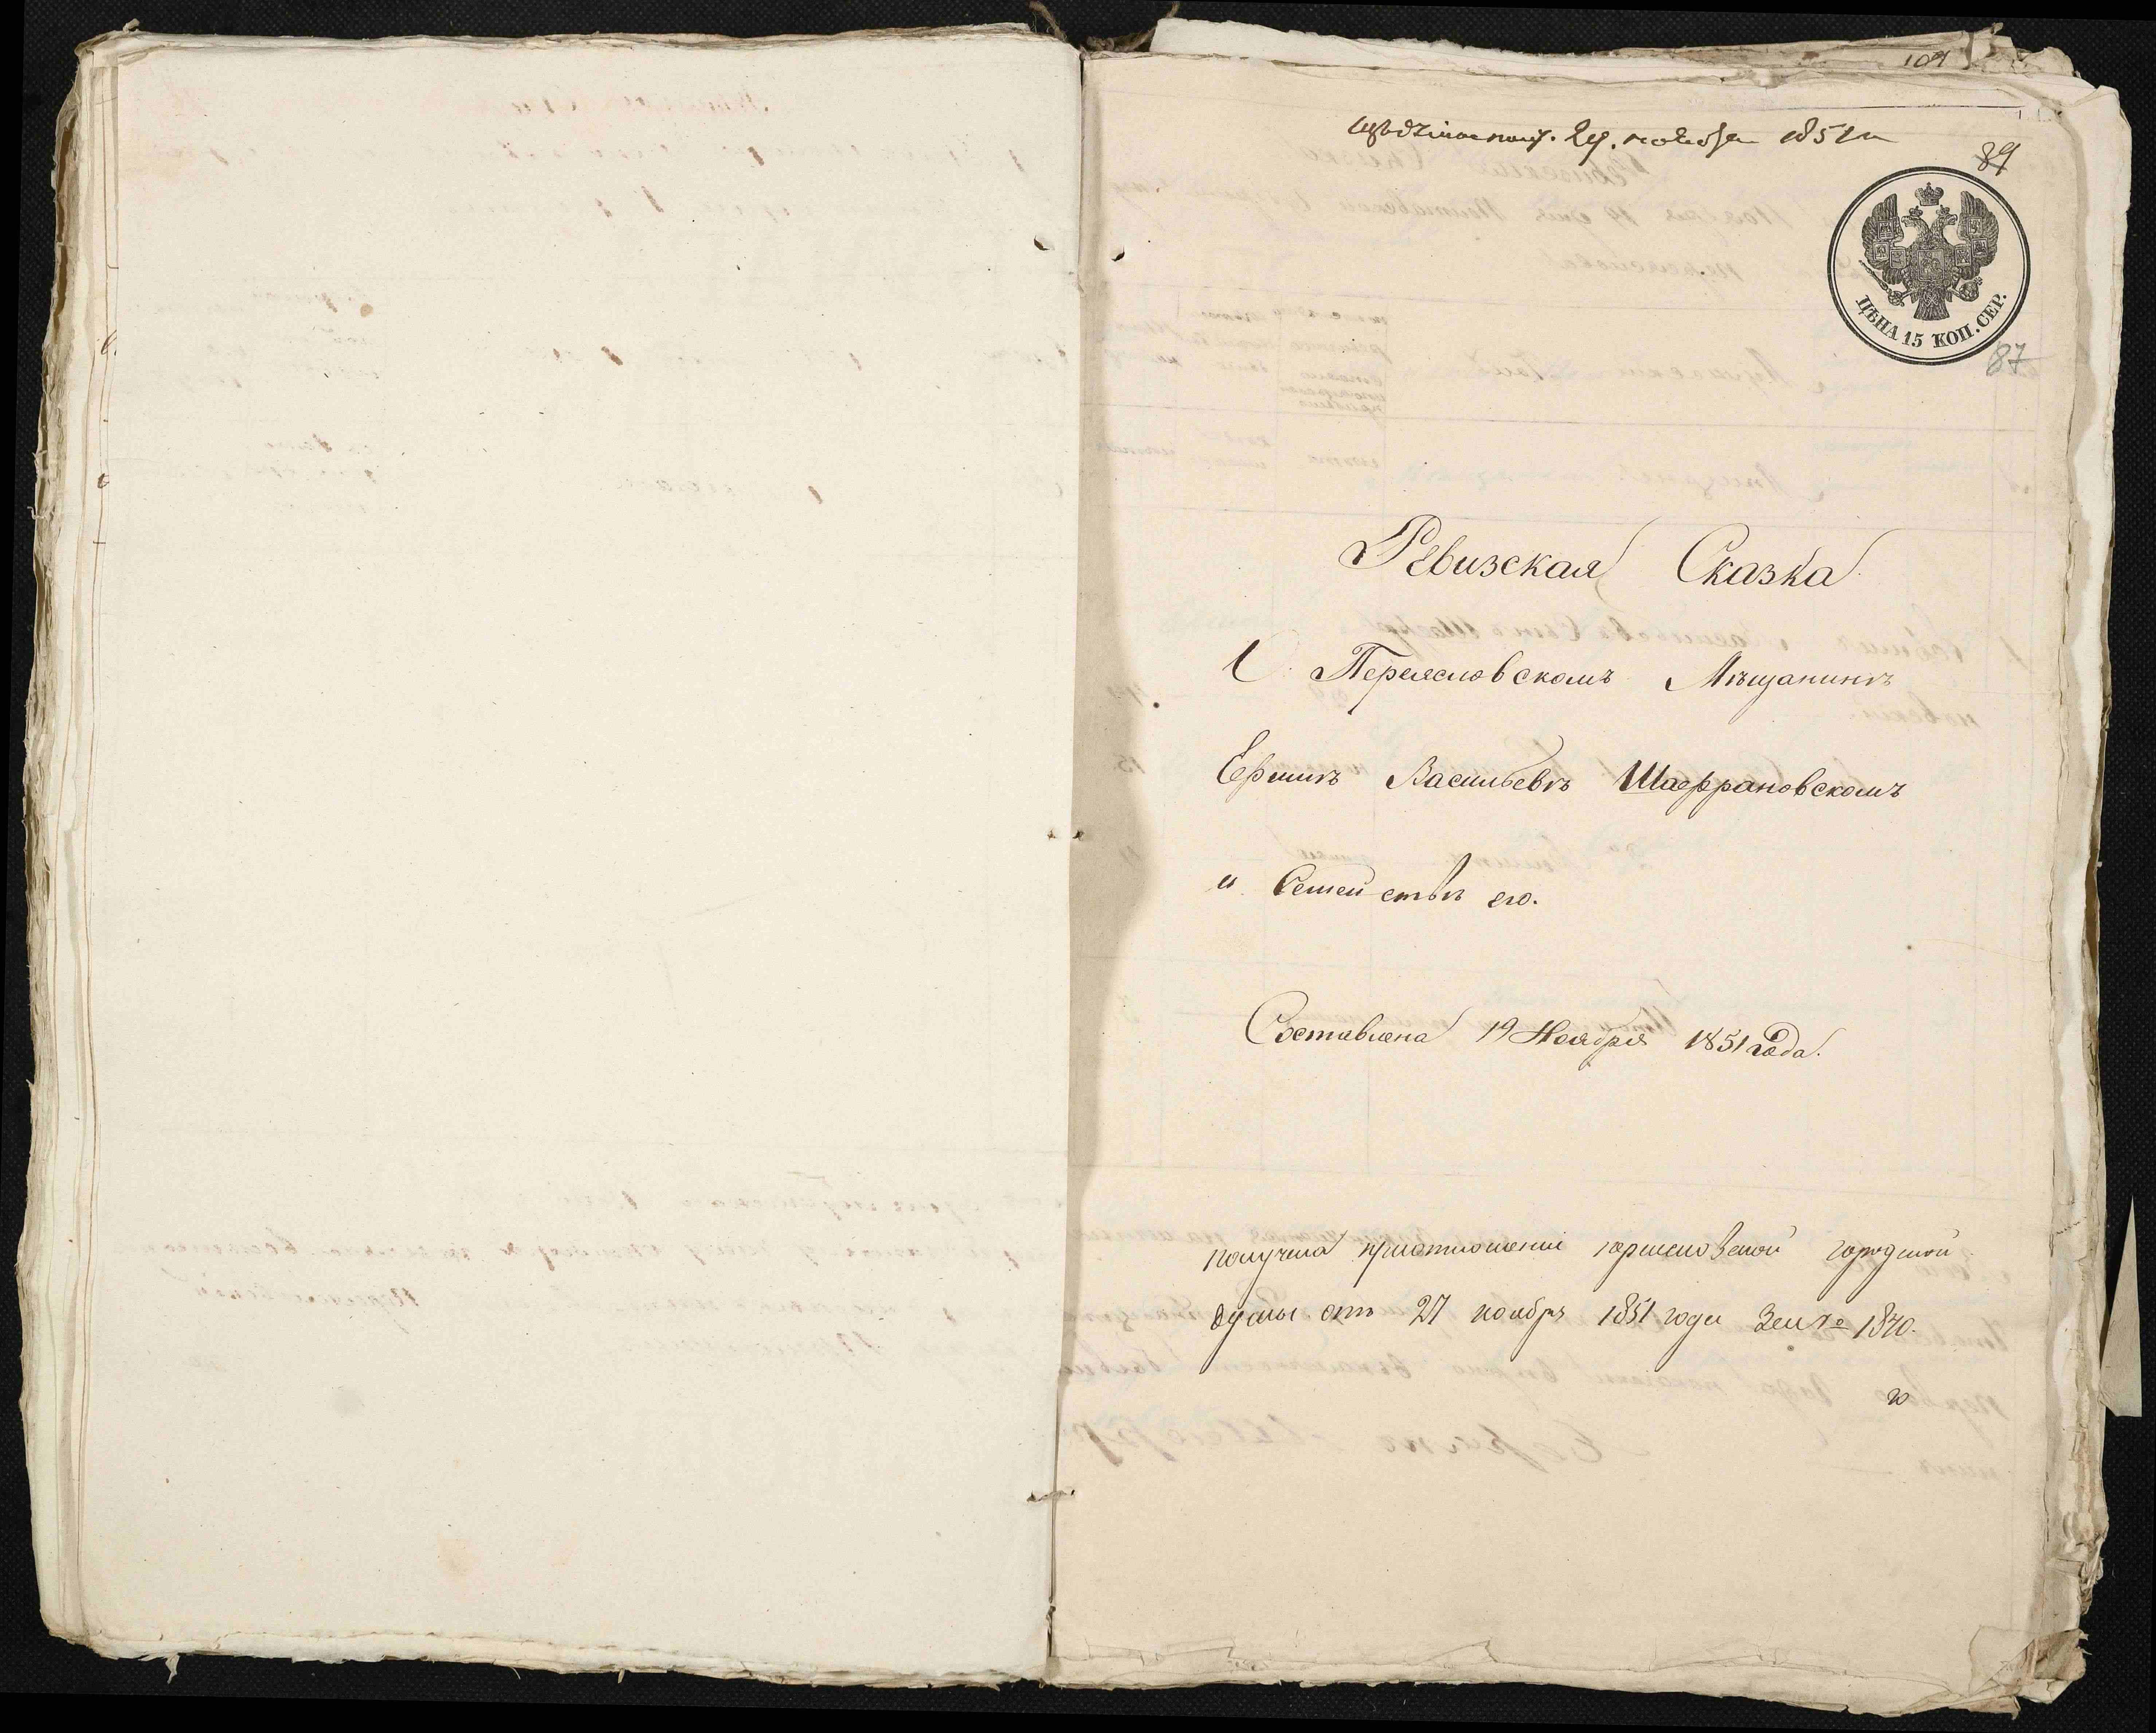 104
29. ноября 1851 г
89
ЦѢНА 15 КОП. СЕР.
87
Ревизская Сказка
О Переясловскомъ Мѣщанинѣ
Ефимѣ Васильевѣ Шаффрановскомъ
и Семействѣ его.
Составлена 19 Ноября 1851 года.
получена приотношении переясловской городской
думы отъ 27 ноября 1851 года за № 1840.